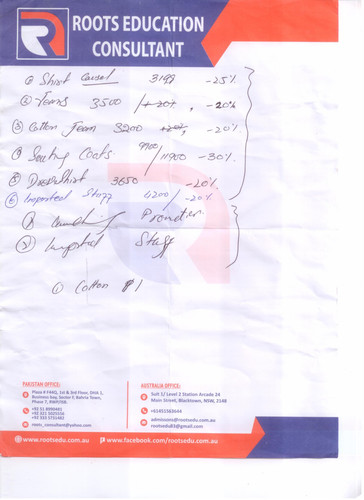 ROOTS EDUCATION
CONSULTANT
① Shirt Causel 3199 -25%
② Jeans 3500 /+20%, -20%
③ Cotton Jean 3200 +20%, -20%
④ Coats 9900/11900 -30%
⑤ Dress Shirt 3650 -20%
⑥ Imported Staff 4200/-20%
① Promotion
② Imported Staff
① Cotton 1
PAKISTAN OFFICE:
Plaza # F44Q, 1st & 3rd Floor, DHA 1,
Business bay, Sector F, Bahria Town,
Phase 7, RWP/ISB.
+92 51 8990481
+92 331 5025556
+92 333 5751465
roots_consultant@yahoo.com
AUSTRALIA OFFICE:
Suit 5/ Level 2 Station Arcada 24
Main Street, Blacktown, NSW, 2148
+61451563644
admissons@rootsedu.com.au
rootsedu83@gmail.com
www.rootsedu.com.au
www.facebook.com/rootsedu.com.au